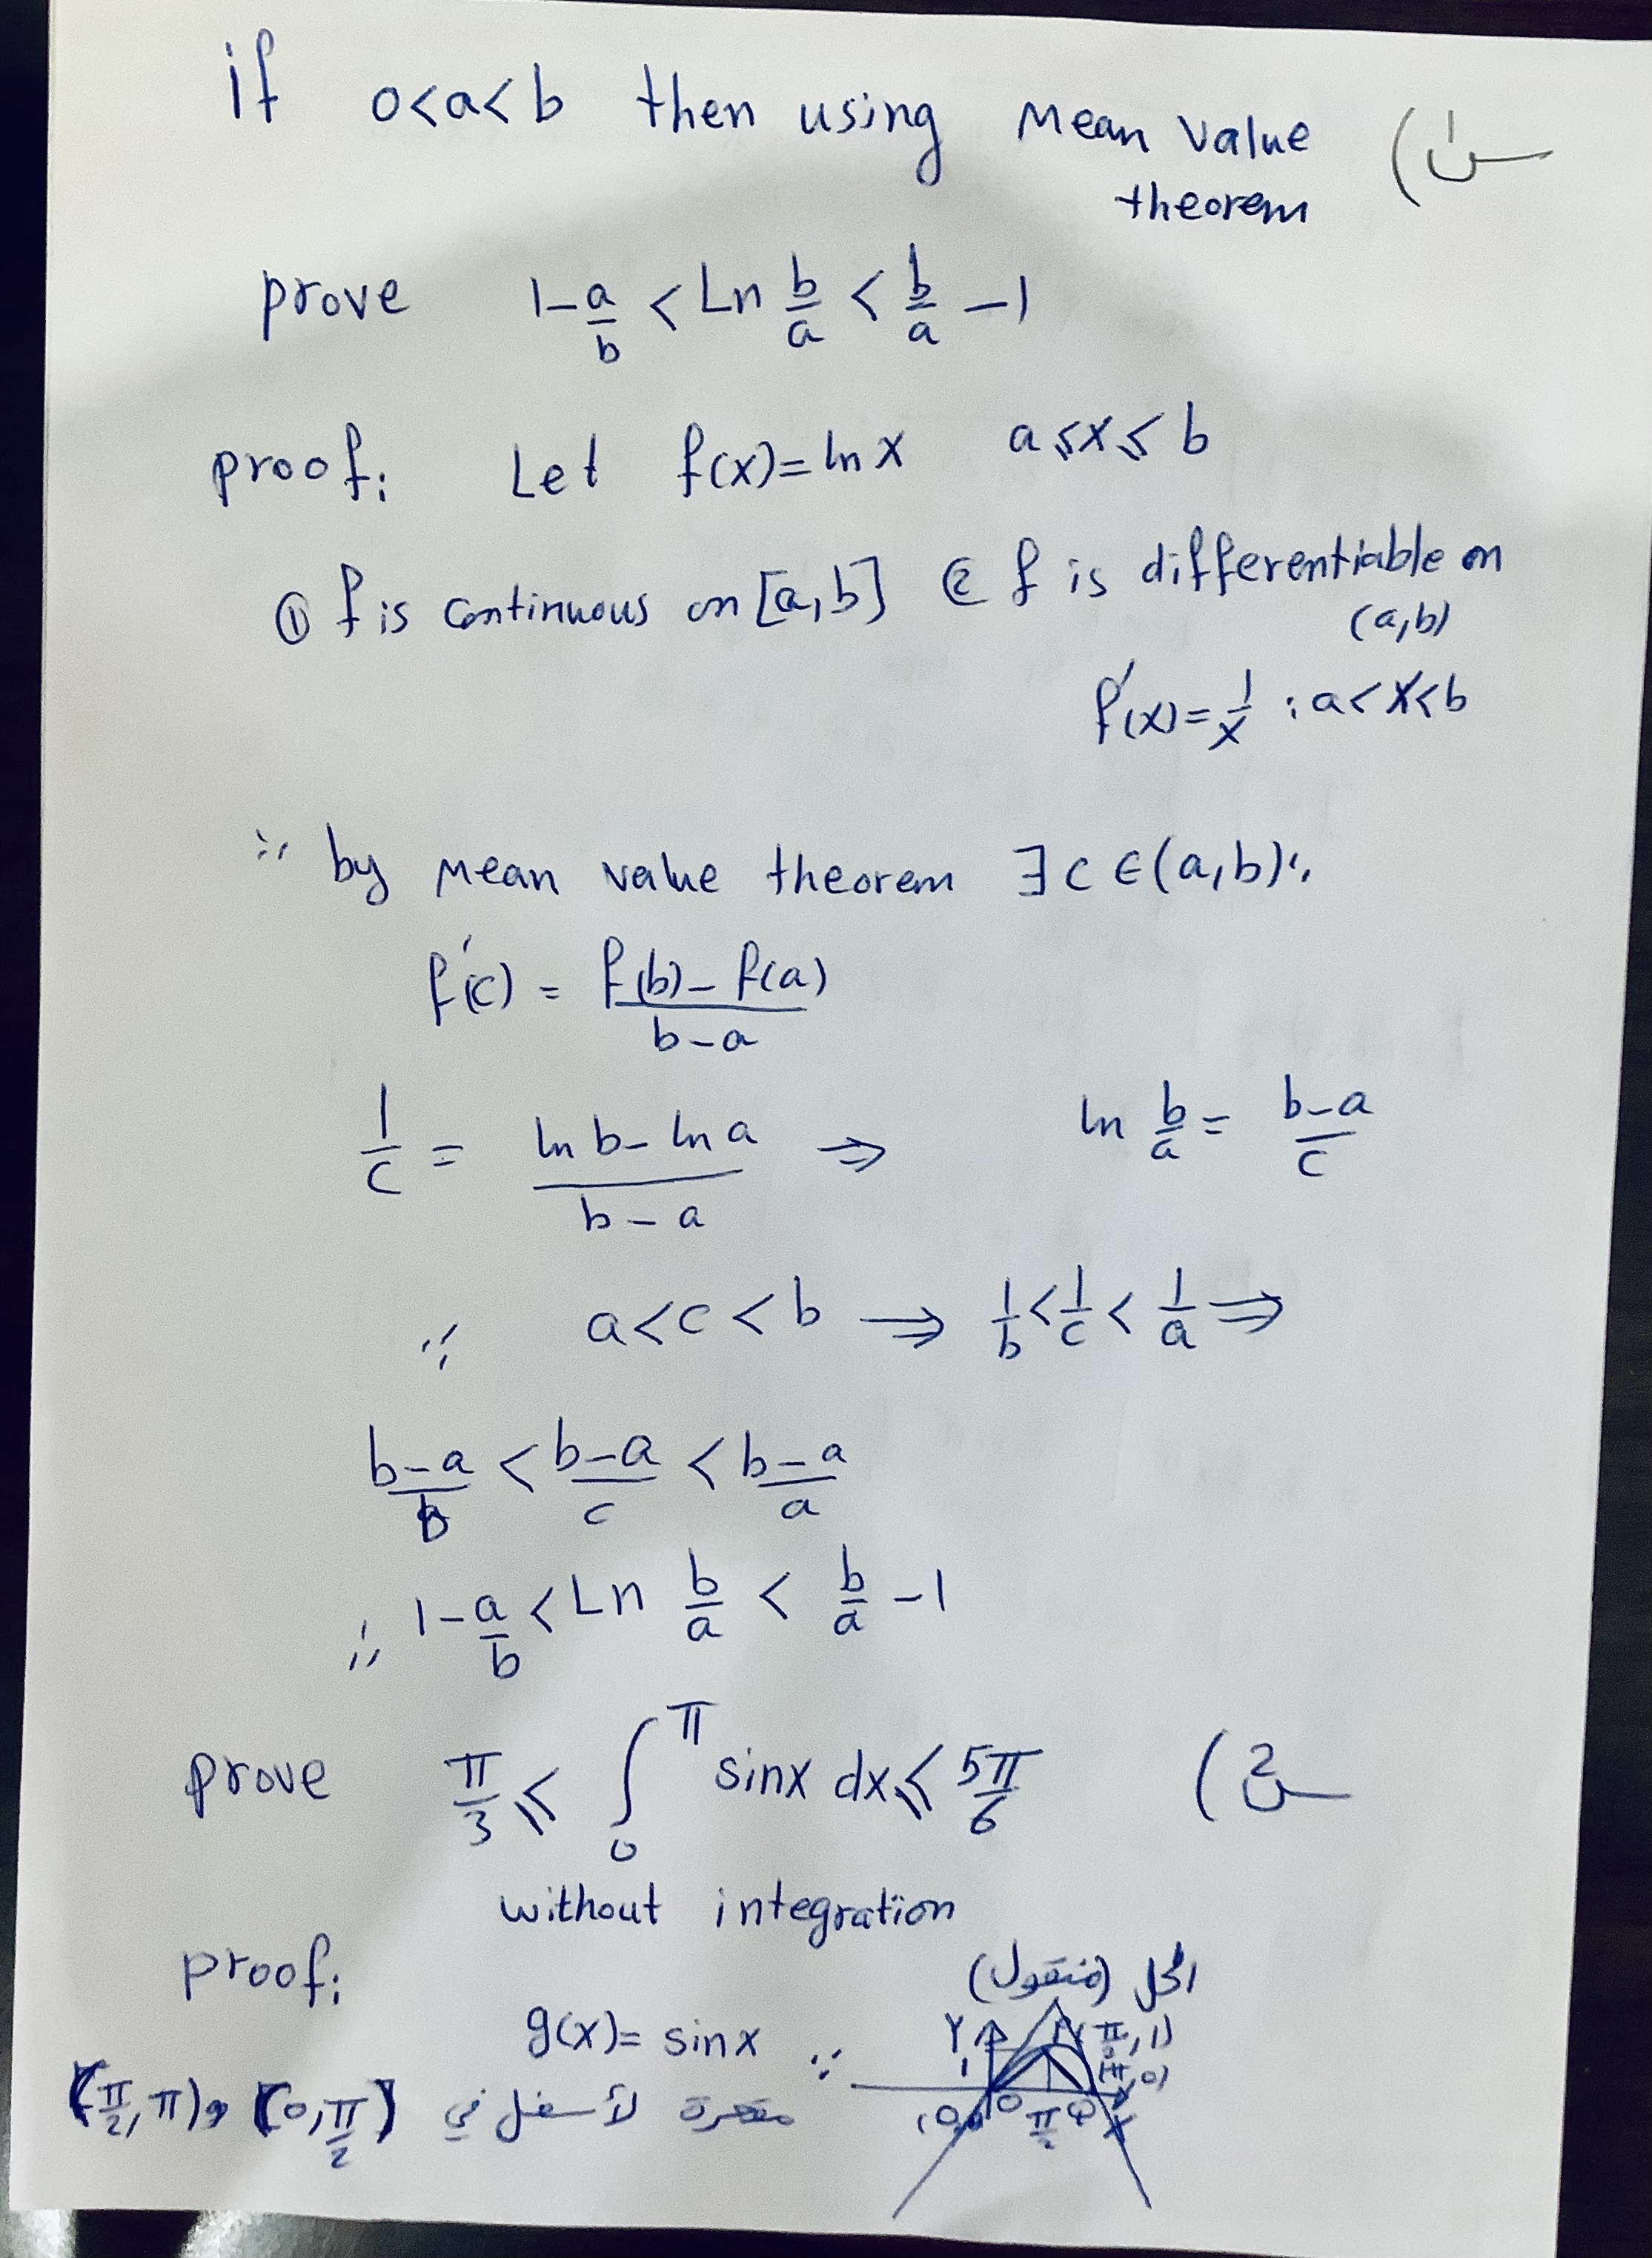 س1) if 0<a<b then using Mean value
theorem
prove 1-a/b < Ln b/a < b/a -1
proof: Let f(x)=ln x a≤x≤b
① f is continuous on [a,b] ② f is differentiable on
(a,b)
f'(x)=1/x ; a<x<b
∵ by Mean value theorem ∃ c ∈ (a,b):
f'(c) = (f(b)-f(a))/(b-a)
1/c = (ln b - ln a)/(b-a) ⇒ ln b/a = (b-a)/c
∵ a<c<b ⇒ 1/b < 1/c < 1/a ⇒
(b-a)/b < (b-a)/c < (b-a)/a
∴ 1-a/b < Ln b/a < b/a -1
س2) prove π/3 ≤ ∫₀^π sinx dx ≤ 5π/6
without integration
proof:
الحل (منقول)
g(x)= sinx ∵
مقعرة لأسفل في (0,π/2) و (π/2,π)
Y
1
(π/2,1)
(π,0)
0
π/2
X